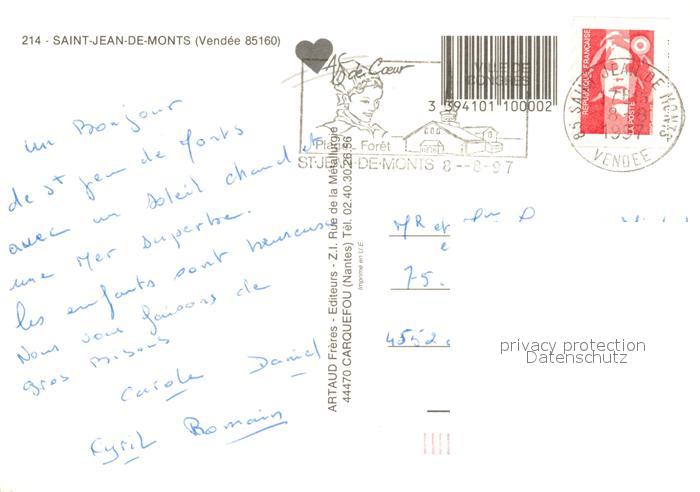 214 - SAINT-JEAN-DE-MONTS (Vendée 85160)
As de Cœur
VILLE DE
CONGRES
3 394101 100002
Plage - Forêt
ST-JEAN-DE-MONTS 8 - -8 -97
REPUBLIQUE FRANÇAISE
LA POSTE
85 SAINT JEAN DE MONTS
1997
VENDEE
un Bonjour
de st Jean de monts
avec un soleil chaud et
une Mer superbe.
les enfants sont heureuse
Nous vous faisons de
gros bisous
Carole Daniel
Cyril Romain
ARTAUD Frères - Editeurs - Z.I. Rue de la Métallurgie
44470 CARQUEFOU (Nantes) Tél. 02.40.30.26.56
Imprimé en U.E.
MR et
75.
4552
privacy protection
Datenschutz